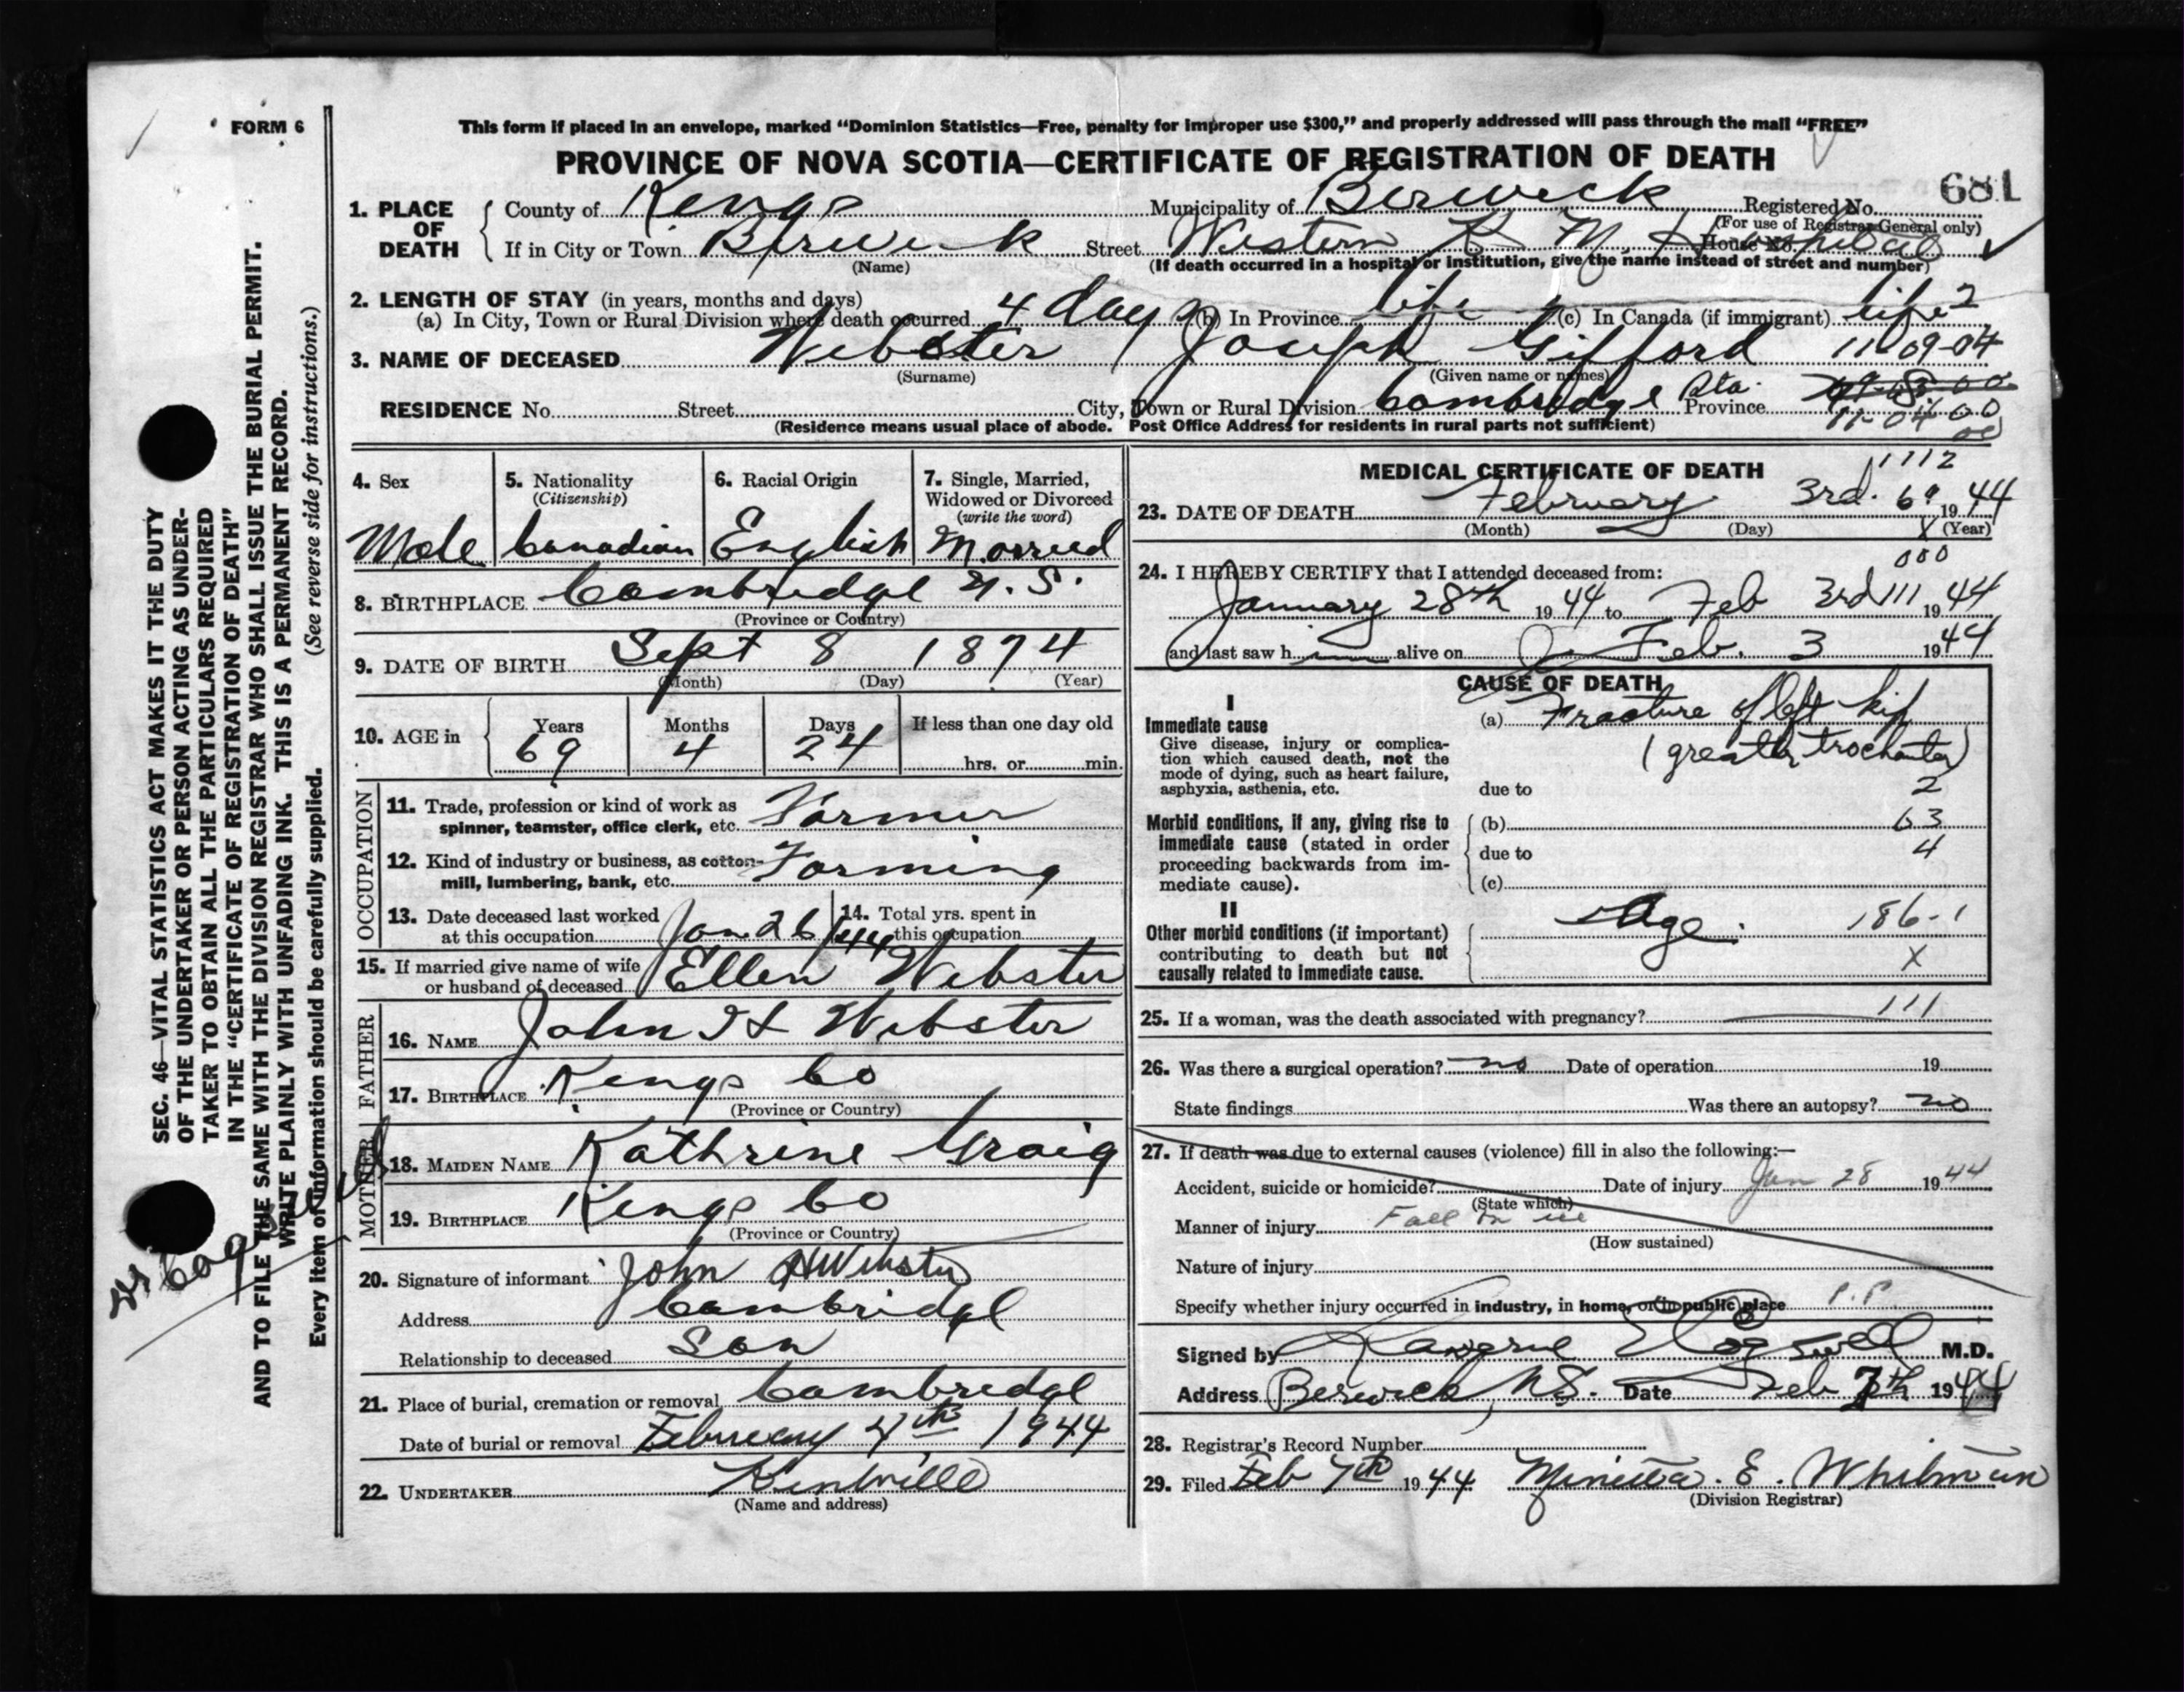 FORM 6
This form if placed in an envelope, marked “Dominion Statistics—Free, penalty for improper use $300,” and properly addressed will pass through the mail “FREE”
PROVINCE OF NOVA SCOTIA—CERTIFICATE OF REGISTRATION OF DEATH
681
1. PLACE OF DEATH
County of Kings Municipality of Berwick Registered No.
(For use of Registrar General only)
If in City or Town Berwick Street Western K M Hospital House No.
(Name) (If death occurred in a hospital or institution, give the name instead of street and number)
2. LENGTH OF STAY (in years, months and days)
(a) In City, Town or Rural Division where death occurred 4 days (b) In Province life (c) In Canada (if immigrant) life 2
3. NAME OF DECEASED Webster Joseph Gifford 11-09-04
(Surname) (Given name or names)
RESIDENCE No. Street City, Town or Rural Division Cambridge Sta. Province
11-04 00
(Residence means usual place of abode. Post Office Address for residents in rural parts not sufficient)
4. Sex Male
5. Nationality (Citizenship) Canadian
6. Racial Origin English
7. Single, Married, Widowed or Divorced (write the word) Married
8. BIRTHPLACE Cambridge N.S.
(Province or Country)
9. DATE OF BIRTH Sept 8 1874
(Month) (Day) (Year)
10. AGE in Years 69 Months 4 Days 24 If less than one day old
hrs. or min.
OCCUPATION
11. Trade, profession or kind of work as
spinner, teamster, office clerk, etc. Farmer
12. Kind of industry or business, as cotton-
mill, lumbering, bank, etc. Farming
13. Date deceased last worked
at this occupation Jan 26/44
14. Total yrs. spent in
this occupation
15. If married give name of wife
or husband of deceased Ellen Webster
FATHER
16. NAME John H Webster
17. BIRTHPLACE Kings Co
(Province or Country)
MOTHER
18. MAIDEN NAME Kathrine Graig
19. BIRTHPLACE Kings Co
(Province or Country)
20. Signature of informant John H Webster
Address Cambridge
Relationship to deceased Son
21. Place of burial, cremation or removal Cambridge
Date of burial or removal February 4th 1944
22. UNDERTAKER Kentville
(Name and address)
MEDICAL CERTIFICATE OF DEATH
1112
23. DATE OF DEATH February 3rd. 69 1944
(Month) (Day) X (Year)
000
24. I HEREBY CERTIFY that I attended deceased from:
January 28th 1944 to Feb 3rd 111 1944
and last saw him alive on Feb. 3 1944
CAUSE OF DEATH
I
Immediate cause
Give disease, injury or complica-
tion which caused death, not the
mode of dying, such as heart failure,
asphyxia, asthenia, etc.
(a) Fracture of left hip
(greater trochanter)
due to 2
Morbid conditions, if any, giving rise to
immediate cause (stated in order
proceeding backwards from im-
mediate cause).
(b) 63
due to 4
(c)
II
Other morbid conditions (if important)
contributing to death but not
causally related to immediate cause.
Age. 186-1
X
25. If a woman, was the death associated with pregnancy? 111
26. Was there a surgical operation? no Date of operation 19
State findings Was there an autopsy? no
27. If death was due to external causes (violence) fill in also the following:—
Accident, suicide or homicide? Date of injury Jan 28 1944
(State which)
Manner of injury Fall on ice
(How sustained)
Nature of injury
Specify whether injury occurred in industry, in home, or in public place P.P.
Signed by Cogswell M.D.
Address Berwick, N.S. Date Feb 7th 1944
28. Registrar's Record Number
29. Filed Feb 7th 1944 Minetta. E. Whitman
(Division Registrar)
SEC. 46—VITAL STATISTICS ACT MAKES IT THE DUTY
OF THE UNDERTAKER OR PERSON ACTING AS UNDER-
TAKER TO OBTAIN ALL THE PARTICULARS REQUIRED
IN THE “CERTIFICATE OF REGISTRATION OF DEATH”
AND TO FILE THE SAME WITH THE DIVISION REGISTRAR WHO SHALL ISSUE THE BURIAL PERMIT.
WRITE PLAINLY WITH UNFADING INK. THIS IS A PERMANENT RECORD.
Every item of information should be carefully supplied. (See reverse side for instructions.)
Dr Cogswell